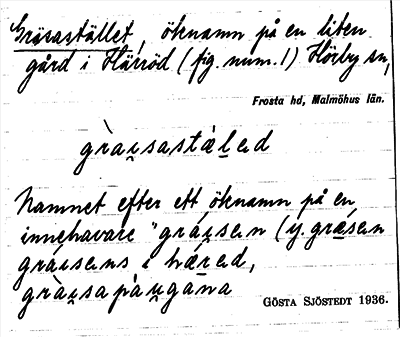 Grisastället, öknamn på en liten
gård i Härröd (fig. num. 1) Hörby sn,
Frosta hd, Malmöhus län.
gràı̯sastɑ̀l̯ed
Namnet efter ett öknamn på en
innehavare "gráı̯sen (y. grǽsen
gráı̯sens i hǽr̄ed,
gràı̯sapàu̯gana
GÖSTA SJÖSTEDT 1936.